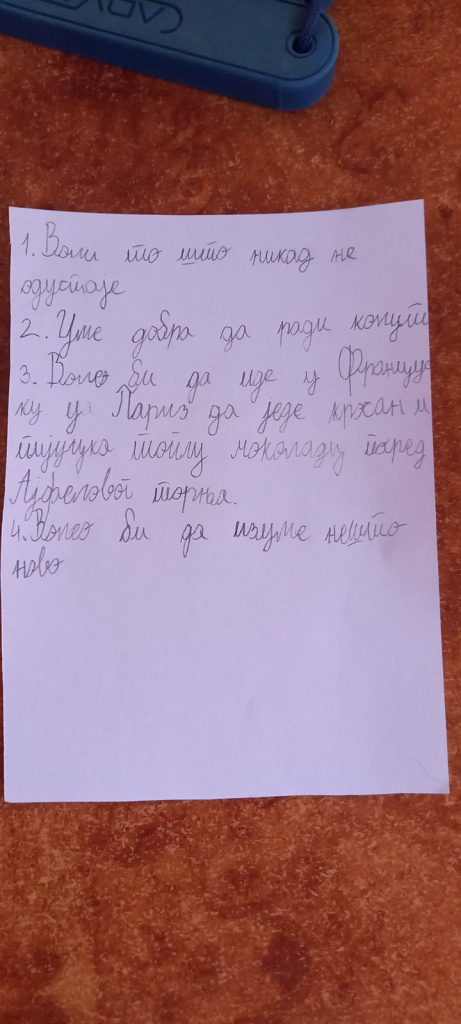 1. Воли то што никад не
одустаје
2. Уме добра да ради
3. Волео би да иде у Француз
ку у Париз да једе кроасан и
топлу чоколаду поред
Ајфеловог торња.
4. Волео би да изуме нешто
ново